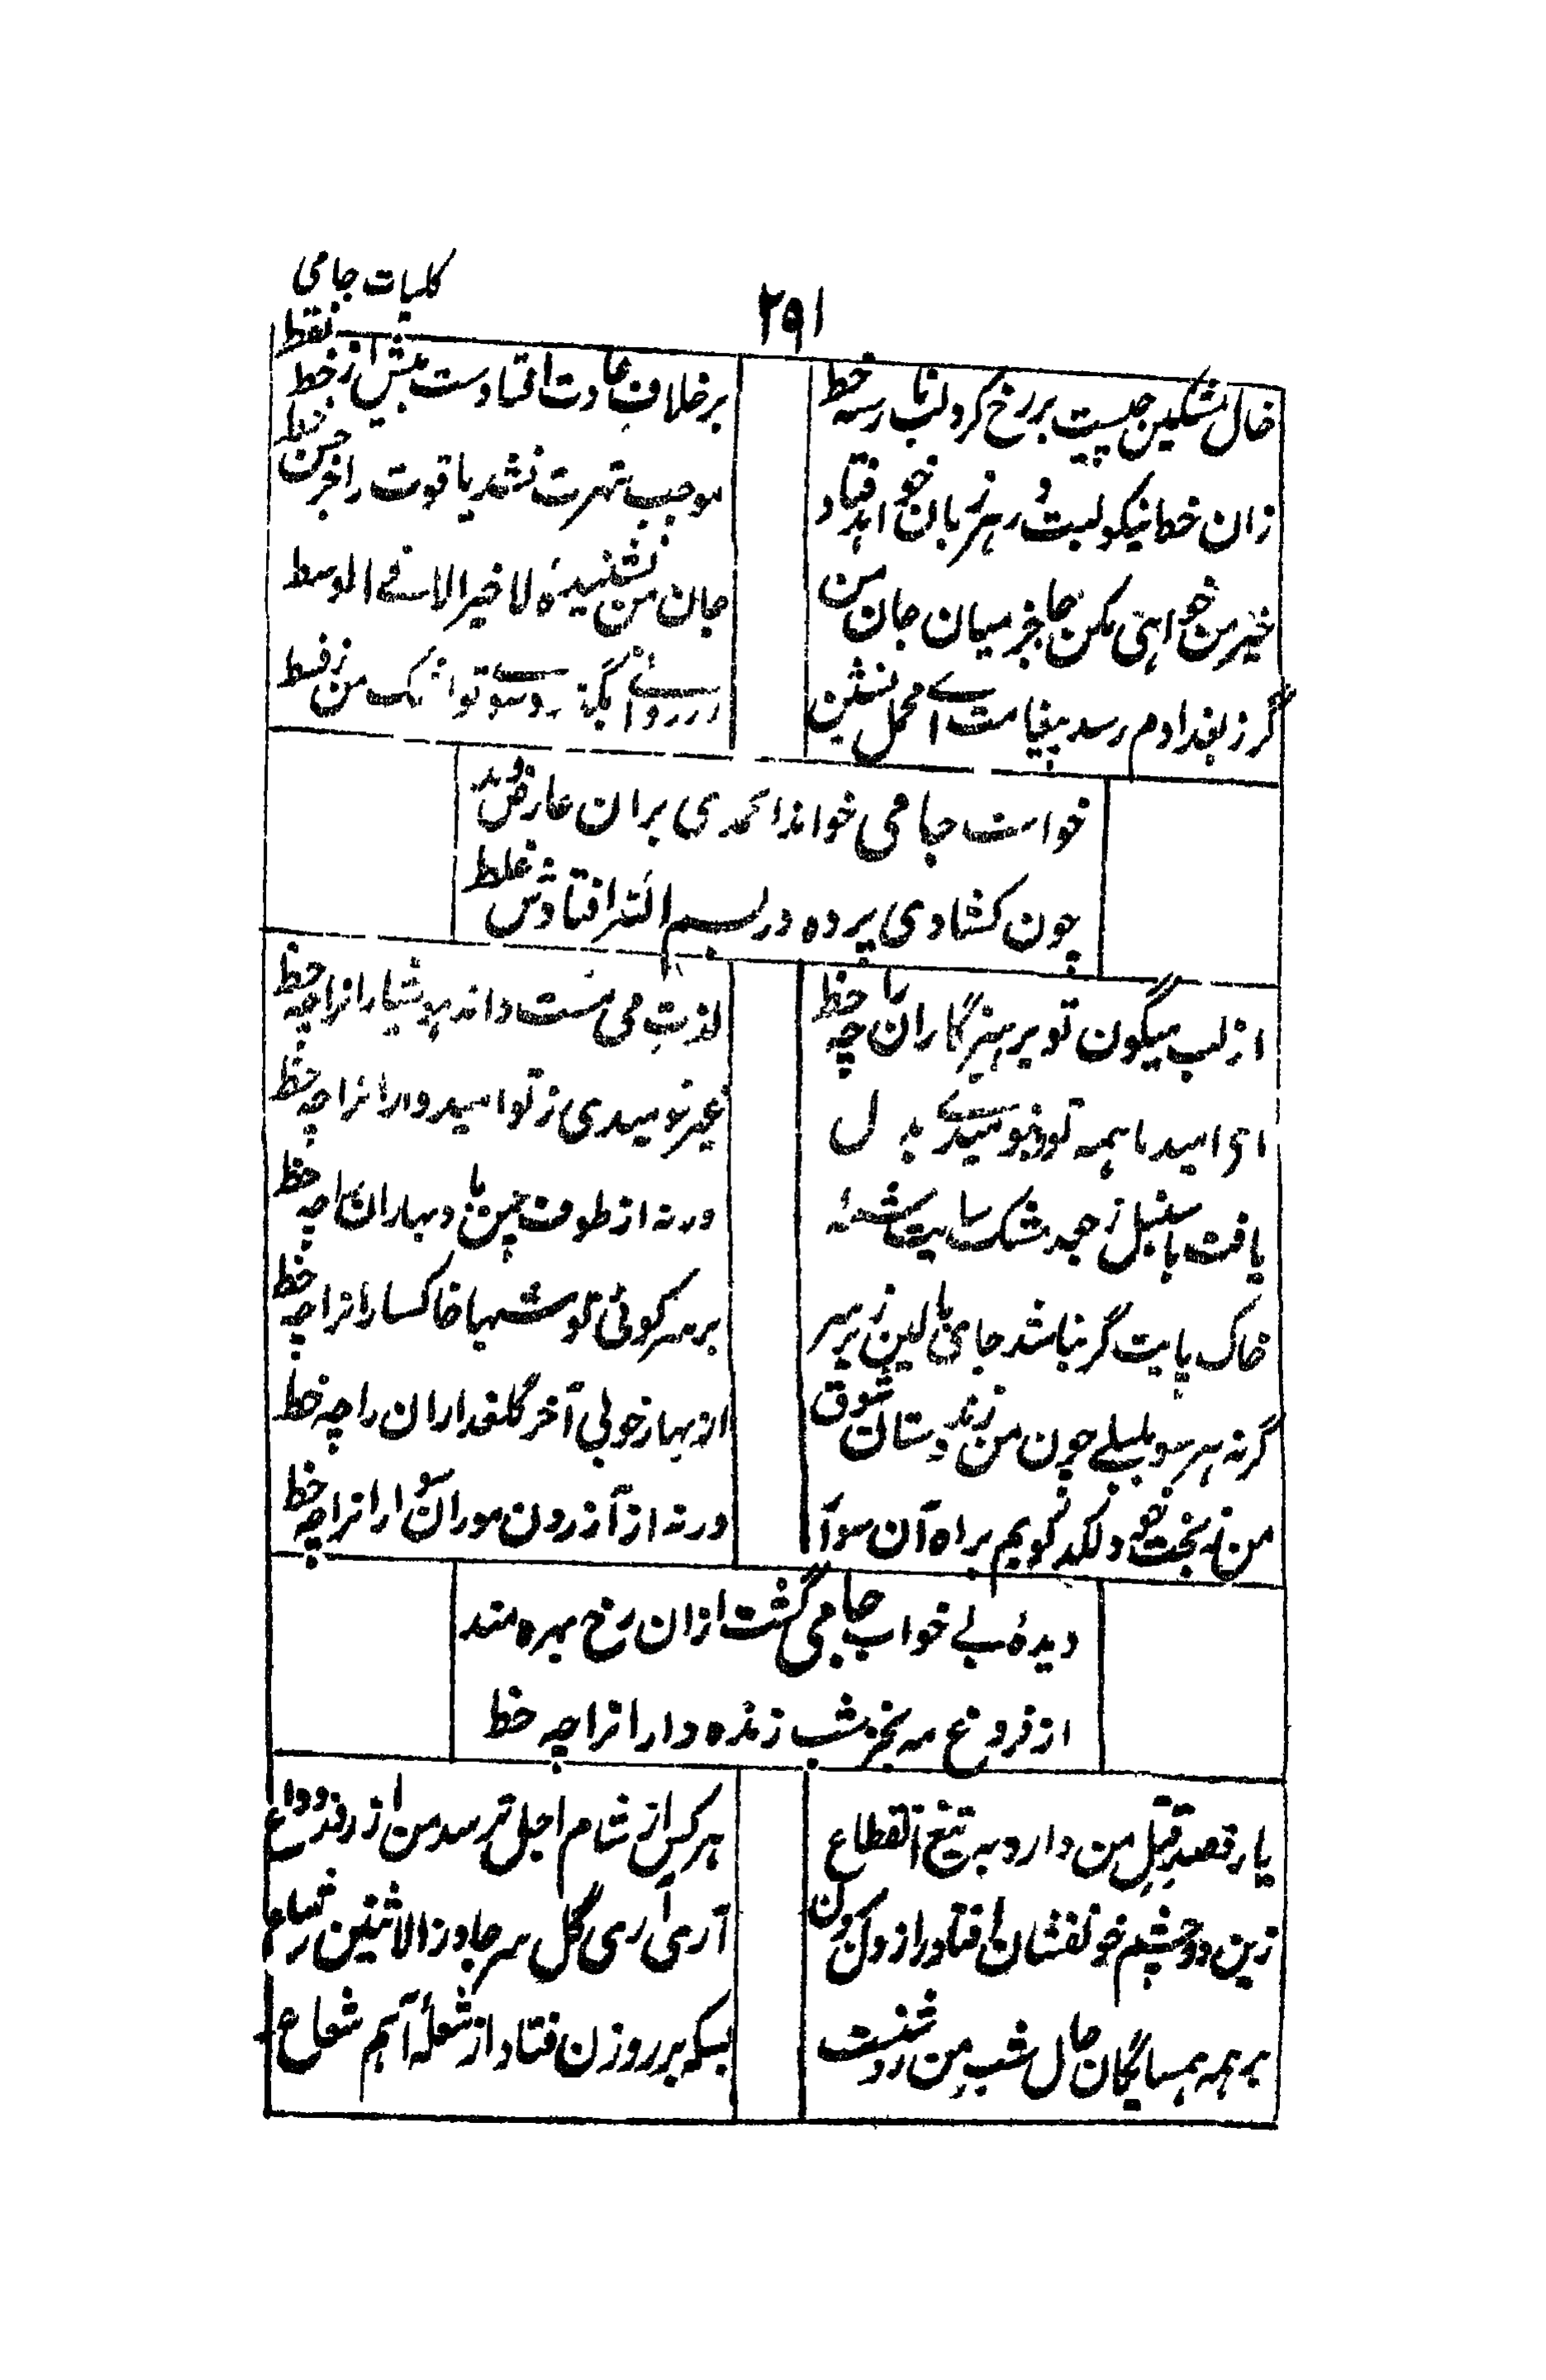 کلیات جامی
۲۹۱
خال مشکین چیست بر رخ گرد لب نارسته خط
بر خلاف عادت افتادست پیش از خط نقط
زان خط نیکو لبت رهزن بان خواهد فتاد
موجب شهرت نشد یاقوت را جز حسن خط
خیر من خواهی مکن جا جز میان جان من
جان من نشنیدهٔ لا خیر الا فی الوسط
گر ز بغدادم رسد پیغامت اے محمل نشین
خواست جامی خواند الحمدی بران عارض
چون کشادی پرده در بسم الله افتادش غلط
از لب میگون تو پرهیزگاران را چه حظ
لذت می مست داند هوشیارانرا چه حظ
ای امید ما همه تو نومیدے بدل
غیر نومیدی ز تو امیدوارانرا چه حظ
یافت با سنبل ز جعد مشک سایت شمهٔ
ورنه از طوف چمن باد بهاران را چه حظ
خاک پایت گر نباشد جای بالین زیر سر
بر سر کوئی تو شبها خاکسارانرا چه حظ
گر نه هر سو بلبلے چون من زند دستان شوق
از بهار خوبی آخر گلعذاران را چه حظ
من نه بخت خود لکد کویم براه آن سوار
ورنه از آزردن موران سوارانرا چه حظ
دیدهٔ بی خواب جامی گشت ازان رخ بهره مند
از فروغ مه بجز شب زنده دارانرا چه حظ
یار قصد قتل من دارد به تیغ انقطاع
هر کس از شام اجل ترسد من از روز وداع
زین دو چشم خونفشان افتاد راز دل برون
آری آری کل سر جاوز الاثنین شاع
بر همه همسایگان حال شب من روشنست
بسکه بر روزن فتاد از شعلهٔ آهم شعاع